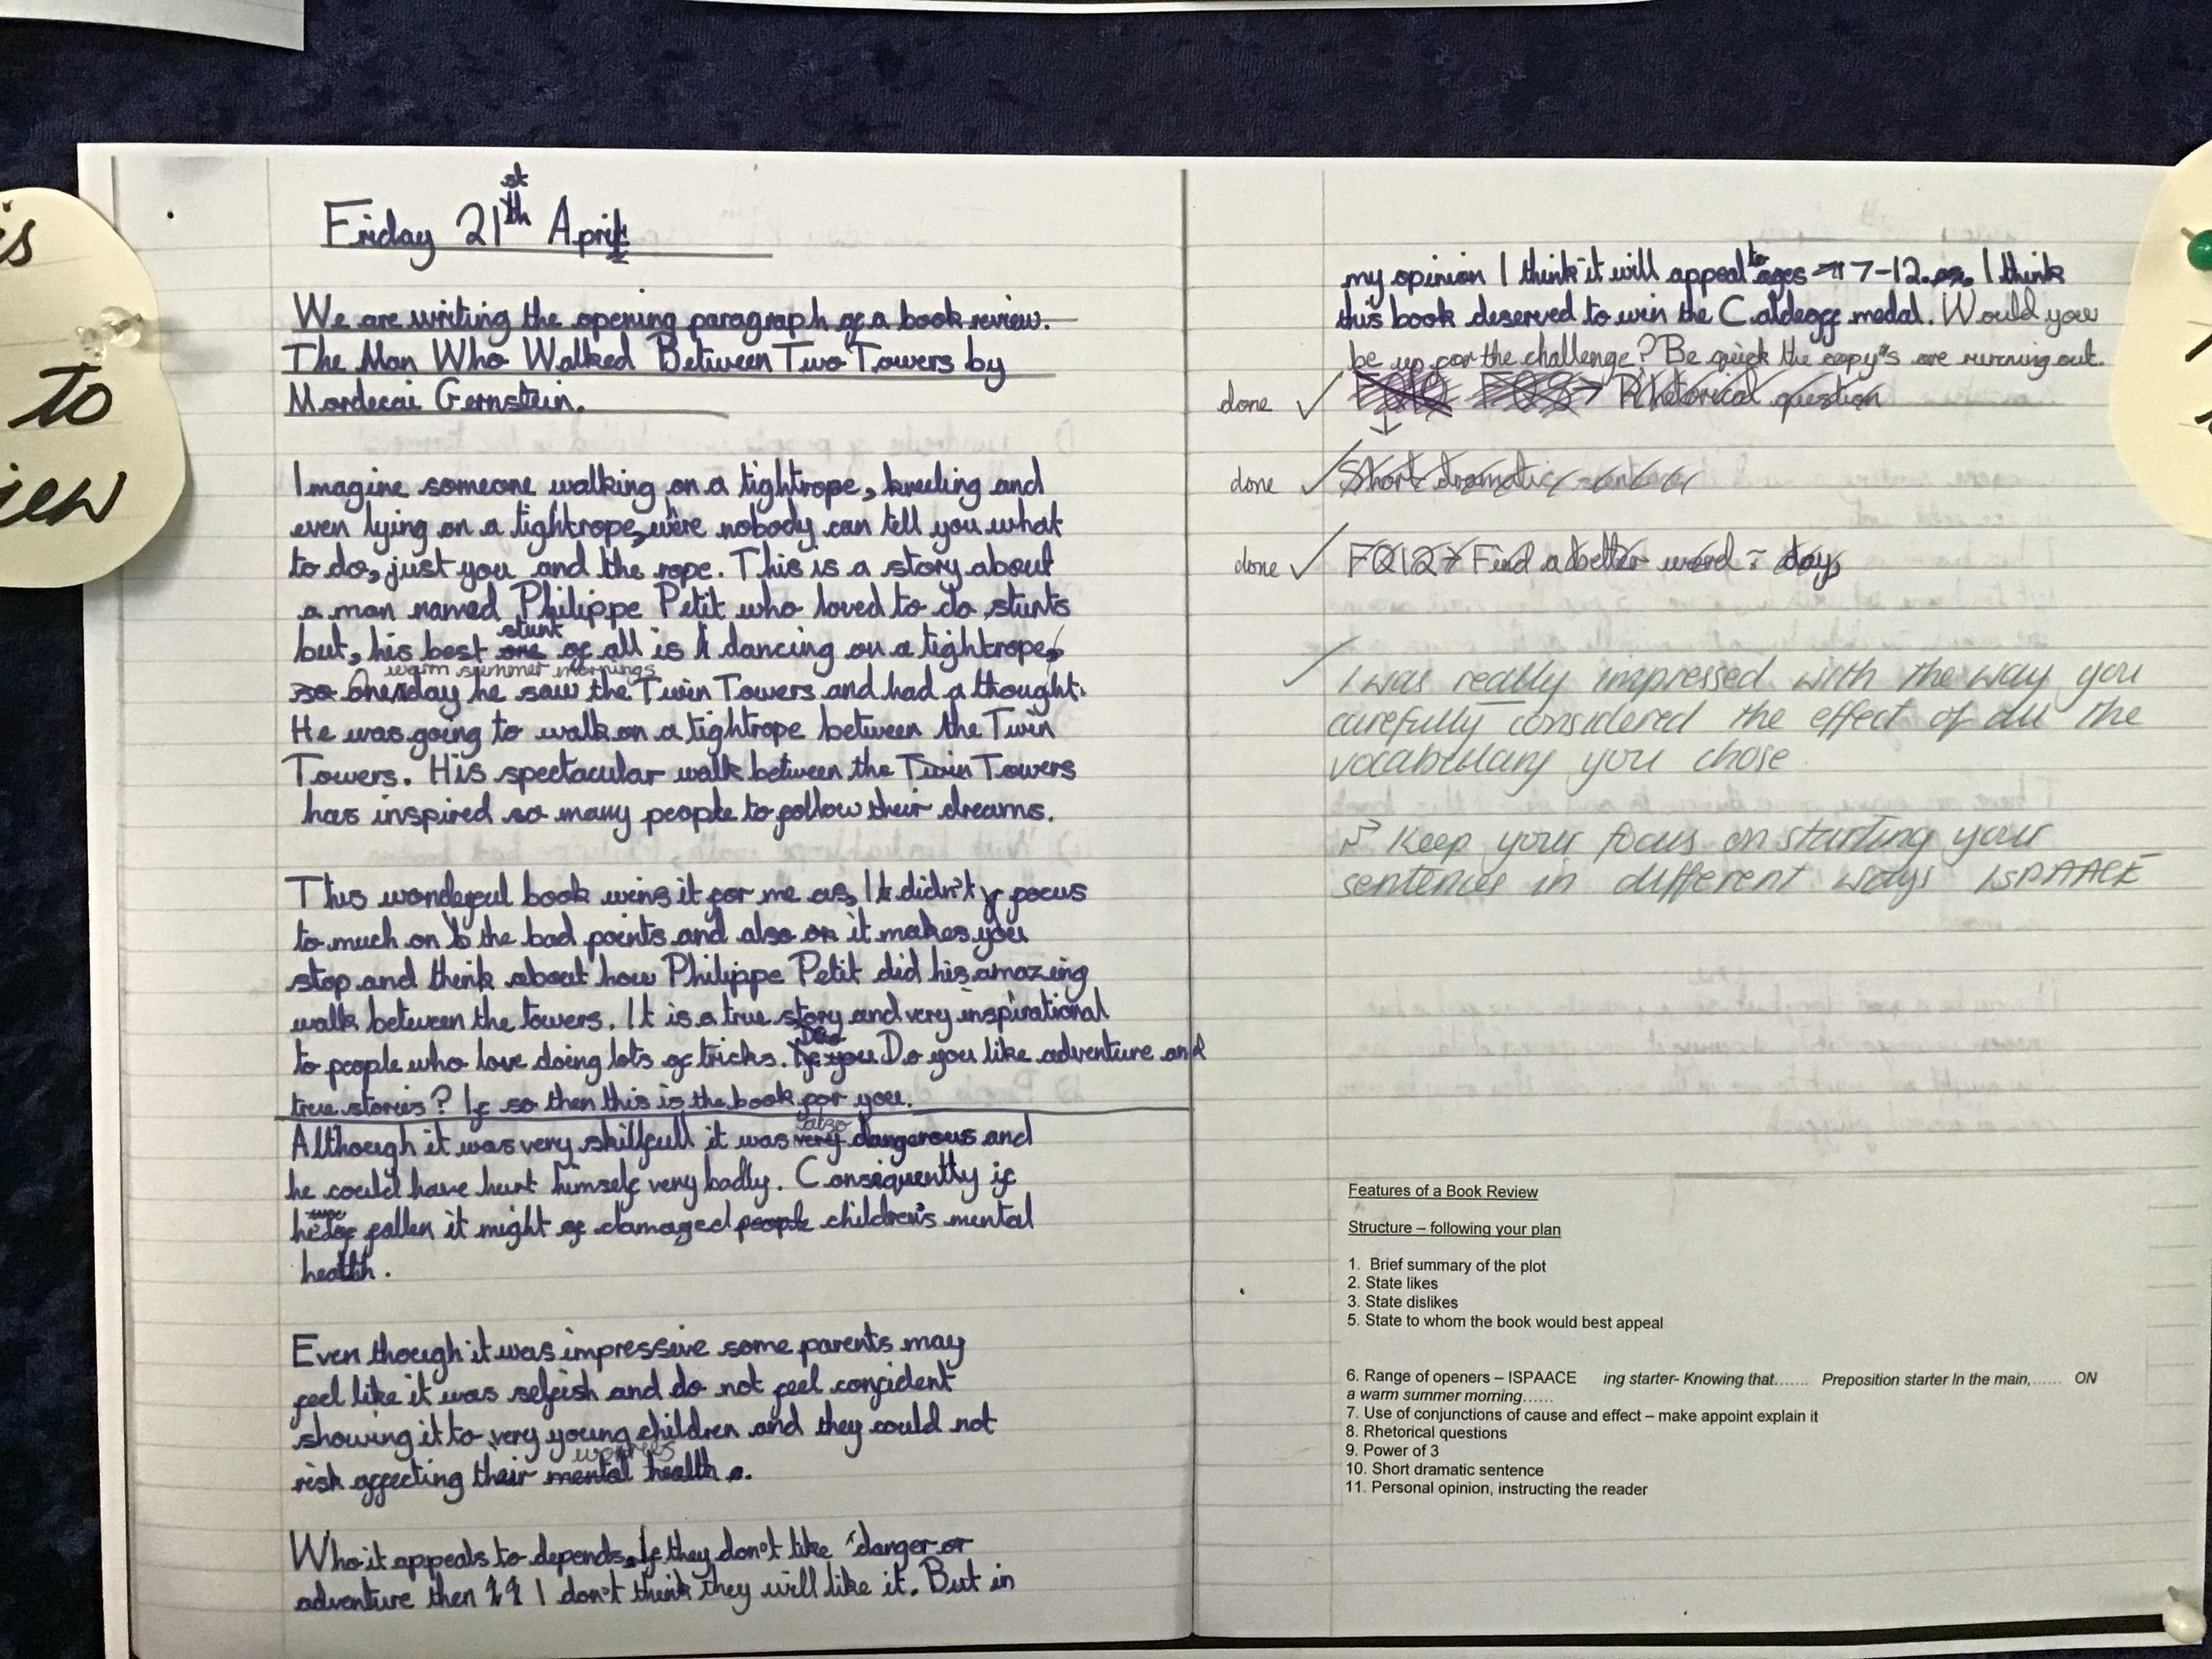 is
to
iew
Friday 21st April
We are writing the opening paragraph of a book review.
The Man Who Walked Between Two Towers by
Mordecai Gernstein.
Imagine someone walking on a tightrope, kneeling and
even lying on a tightrope, where nobody can tell you what
to do, just you and the rope. This is a story about
a man named Philippe Petit who loved to do stunts
but, his best stunt of all is dancing on a tightrope,
warm summer mornings
One day he saw the Twin Towers and had a thought.
He was going to walk on a tightrope between the Twin
Towers. His spectacular walk between the Twin Towers
has inspired so many people to follow their dreams.
This wonderful book wins it for me as, It didn't focus
to much on the bad points and also it makes you
stop and think about how Philippe Petit did his amazing
walk between the towers. It is a true story and very inspirational
to people who love doing lots of tricks. Do you like adventure and
true stories? If so then this is the book for you.
Although it was very skillfull it was also dangerous and
he could have hurt himself very badly. Consequently if
he fallen it might of damaged children's mental
health.
Even though it was impressive some parents may
feel like it was selfish and do not feel confident
showing it to very young children and they could not
risk affecting their worries.
Who it appeals to depends. If they don't like danger or
adventure then I don't think they will like it. But in
my opinion I think it will appeal to ages 7-12. I think
this book deserved to win the Caldeoff medal. Would you
be up for the challenge? Be quick the copy's are running out.
done ✓ Rhetorical question
done ✓ Short dramatic sentence
done ✓ FQ12 → Find a better word = day
✓ I was really impressed with the way you
carefully considered the effect of all the
vocabulary you chose.
Keep your focus on starting your
sentences in different ways ISPAACE
Features of a Book Review
Structure – following your plan
1. Brief summary of the plot
2. State likes
3. State dislikes
5. State to whom the book would best appeal
6. Range of openers – ISPAACE ing starter- Knowing that....... Preposition starter In the main,...... ON
a warm summer morning......
7. Use of conjunctions of cause and effect – make appoint explain it
8. Rhetorical questions
9. Power of 3
10. Short dramatic sentence
11. Personal opinion, instructing the reader